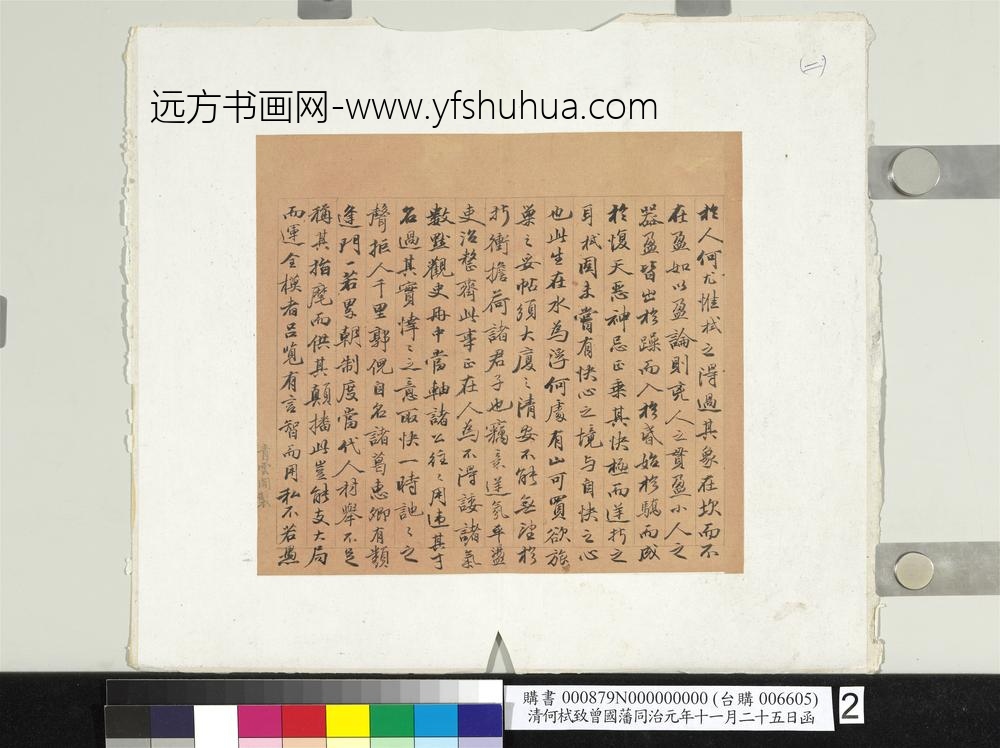 (二)
远方书画网-www.yfshuhua.com
於人何尤惟栻之得過其象在坎而不
在盈如以盈論則竞人之貫盈小人之
器盈皆出於躁而入於昏始於驕而成
於愎天惡神忌正乘其快極而逆折之
耳栻固未嘗有快心之境与自快之心
也此生在水為浮何處有山可買欲旅
巢之妥帖須大廈之清安不能無望於
折衝擔荷諸君子也竊意運氣平盪
吏治整齊此事正在人為不得諉諸氣
數默觀史冊中當軸諸公往々用違其才
名過其實悻々之意取快一時訑々之
聲拒人千里郭倪自名諸葛惠卿有類
逢門一若累朝制度當代人材舉不足
稱其指麾而供其顛播此豈能支大局
而運全模者呂覽有言智而用私不若愚
購書 000879N000000000 (台購 006605)
清何栻致曾國藩同治元年十一月二十五日函
2